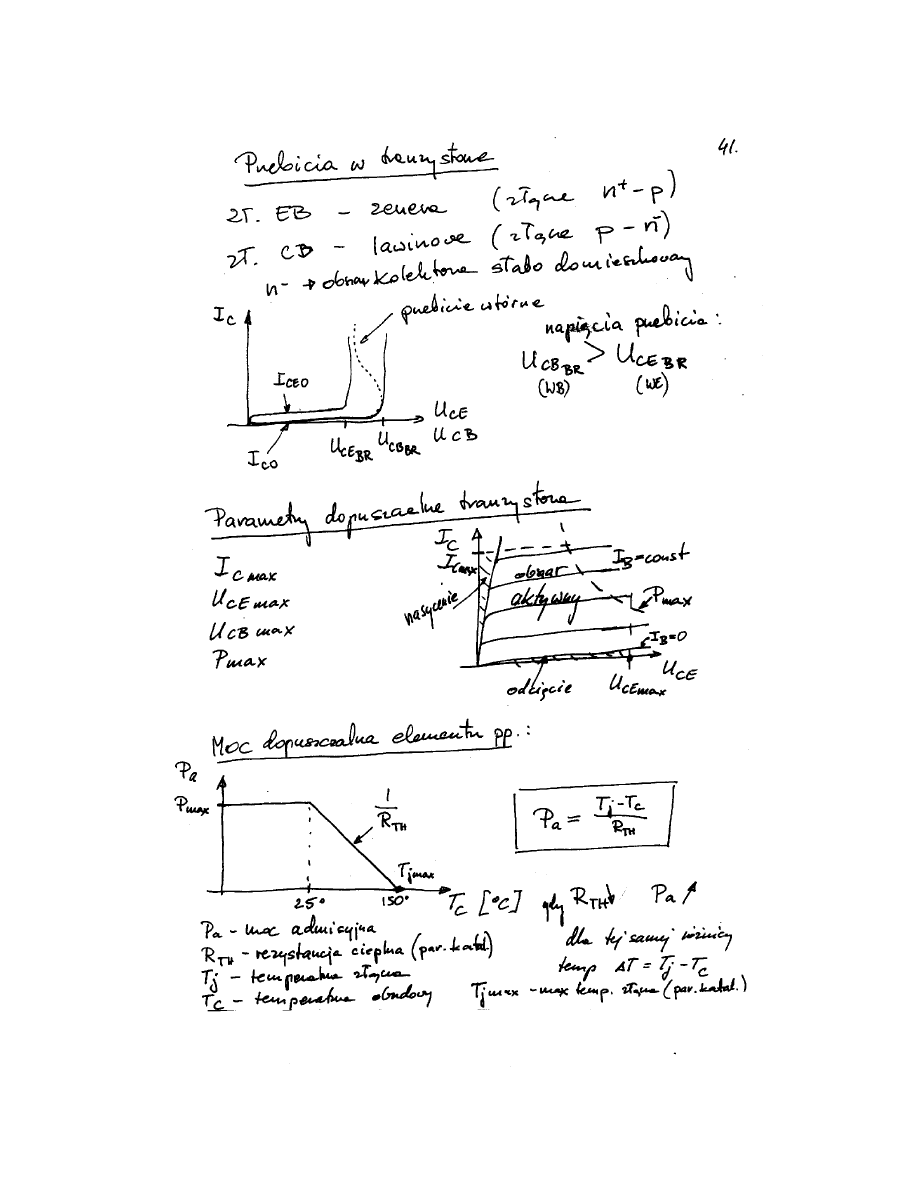 41.
Przebicia w tranzystorze
zł. EB – zenera (złącze n⁺–p)
zł. CB – lawinowe (złącze p–n⁻)
n⁻ → obszar kolektora słabo domieszkowany
I_C
przebicie wtórne
napięcia przebicia:
U_CB_BR > U_CE_BR
(WB) (WE)
I_CEO
U_CE
U_CB
U_CE_BR U_CB_BR
I_CO
Parametry dopuszczalne tranzystora
I_C max
U_CE max
U_CB max
P max
I_C
I_Cmax
I_B=const
obszar
aktywny
nasycenie
P max
I_B=0
U_CE
odcięcie
U_CEmax
Moc dopuszczalna elementu pp.:
P_a
P_max
1/R_TH
T_jmax
25° 150°
T_C [°C]
P_a = (T_j – T_C)/R_TH
gdy R_TH↓ P_a↑
dla tej samej różnicy
temp ΔT = T_j – T_C
P_a – moc admisyjna
R_TH – rezystancja cieplna (par. katal)
T_j – temperatura złącza
T_C – temperatura obudowy
T_jmax – max temp. złącza (par. katal.)